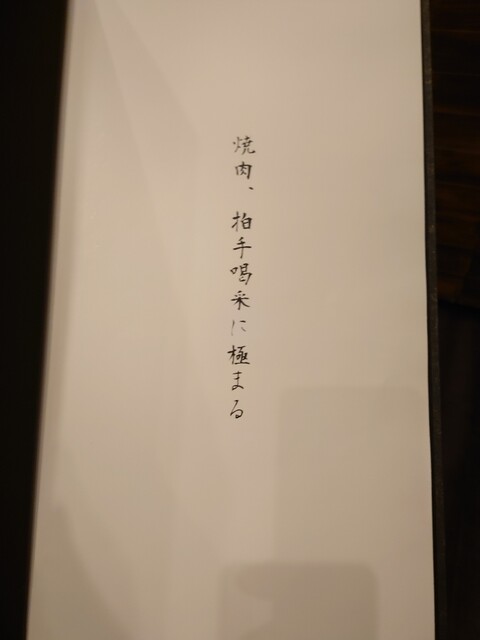 焼肉、拍手喝采に極まる